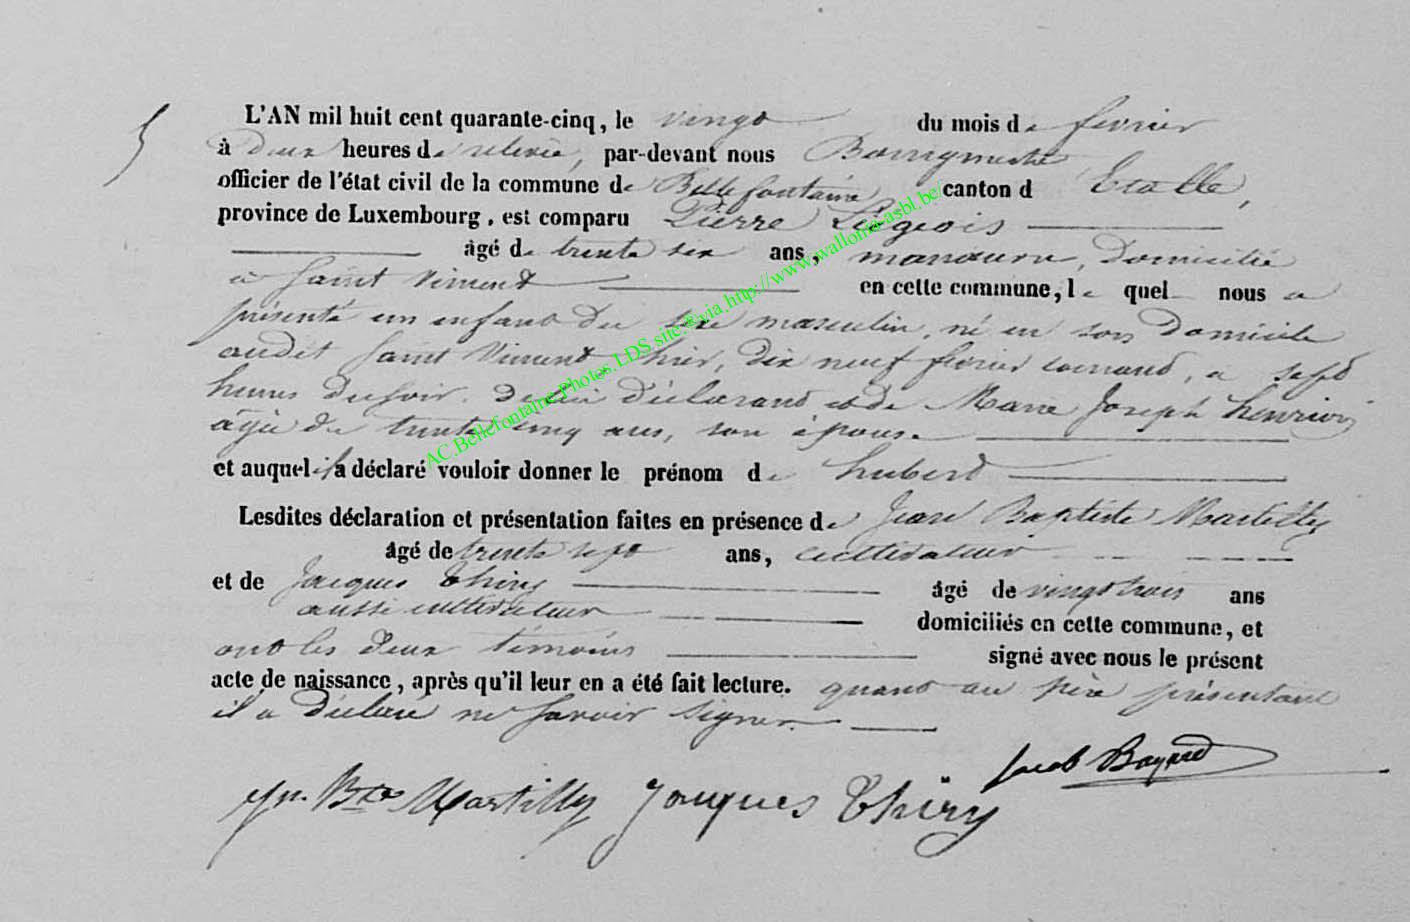 5
L'AN mil huit cent quarante-cinq, le vingt du mois de février
à deux heures de relevée, par-devant nous Bourgmestre
officier de l'état civil de la commune de Bellefontaine canton d Etalle,
province de Luxembourg, est comparu Pierre Liégeois
âgé de trente six ans, manœuvre, domicilié
à Saint Vincent en cette commune, lequel nous a
présenté un enfant du sexe masculin, né en son domicile
audit Saint Vincent hier, dix neuf février courant, à sept
heures du soir, de lui déclarant et de Marie Joseph henrion
âgée de trente cinq ans, son épouse.
et auquel il a déclaré vouloir donner le prénom de hubert
Lesdites déclaration et présentation faites en présence de Jean Baptiste Martilly
âgé de trente sept ans, cultivateur
et de Jacques Thiry âgé de vingt trois ans
aussi cultivateur domiciliés en cette commune, et
ont les deux témoins signé avec nous le présent
acte de naissance, après qu'il leur en a été fait lecture. quant au père présentant
il a déclaré ne savoir signer.
Jacob Bayard
Jn. Bte Martilly Jacques Thiry
AC.Bellefontaine.Photos.LDS site & via http://www.wallonia-asbl.be/